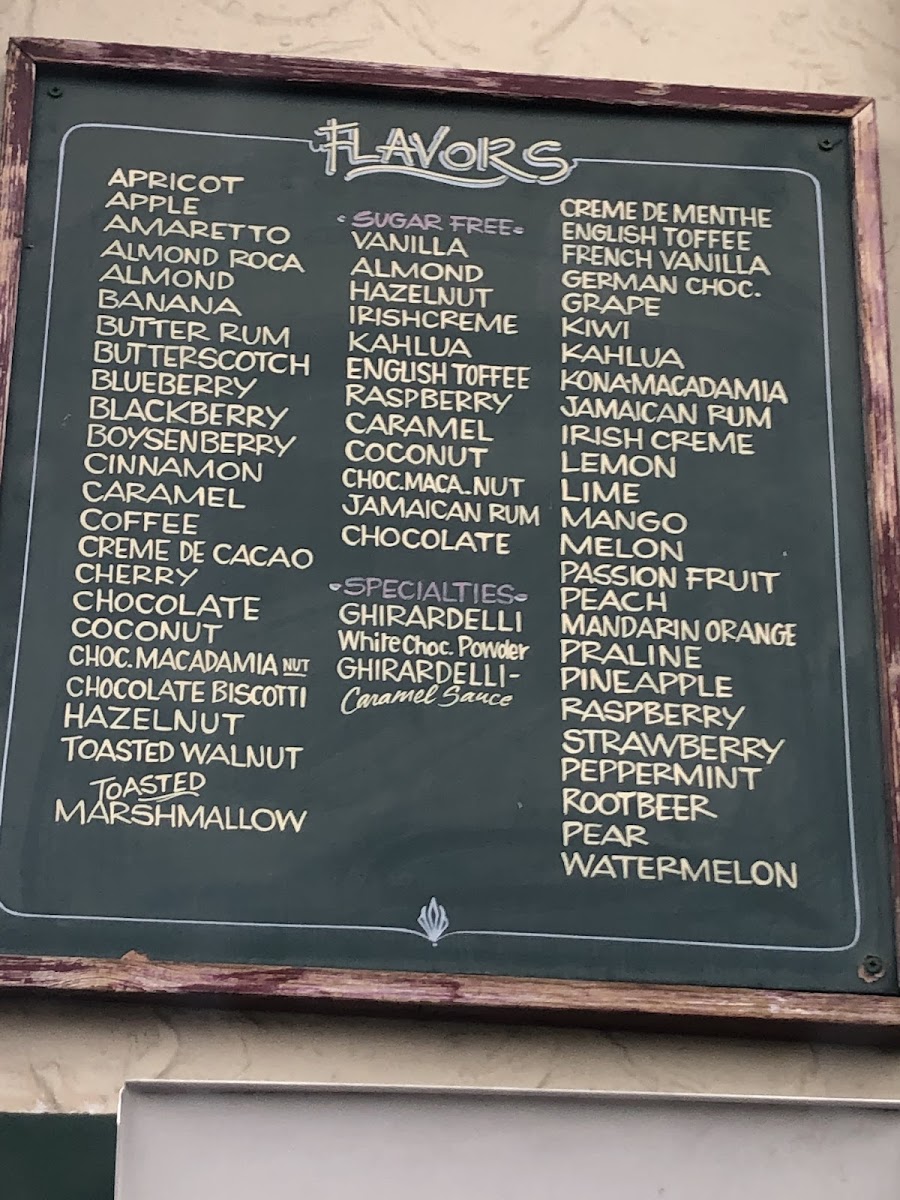 FLAVORS
APRICOT
APPLE
AMARETTO
ALMOND ROCA
ALMOND
BANANA
BUTTER RUM
BUTTERSCOTCH
BLUEBERRY
BLACKBERRY
BOYSENBERRY
CINNAMON
CARAMEL
COFFEE
CREME DE CACAO
CHERRY
CHOCOLATE
COCONUT
CHOC. MACADAMIA NUT
CHOCOLATE BISCOTTI
HAZELNUT
TOASTED WALNUT
TOASTED
MARSHMALLOW
SUGAR FREE
VANILLA
ALMOND
HAZELNUT
IRISHCREME
KAHLUA
ENGLISH TOFFEE
RASPBERRY
CARAMEL
COCONUT
CHOC. MACA. NUT
JAMAICAN RUM
CHOCOLATE
SPECIALTIES
GHIRARDELLI
White Choc. Powder
GHIRARDELLI-
Caramel Sauce
CREME DE MENTHE
ENGLISH TOFFEE
FRENCH VANILLA
GERMAN CHOC.
GRAPE
KIWI
KAHLUA
KONA-MACADAMIA
JAMAICAN RUM
IRISH CREME
LEMON
LIME
MANGO
MELON
PASSION FRUIT
PEACH
MANDARIN ORANGE
PRALINE
PINEAPPLE
RASPBERRY
STRAWBERRY
PEPPERMINT
ROOTBEER
PEAR
WATERMELON